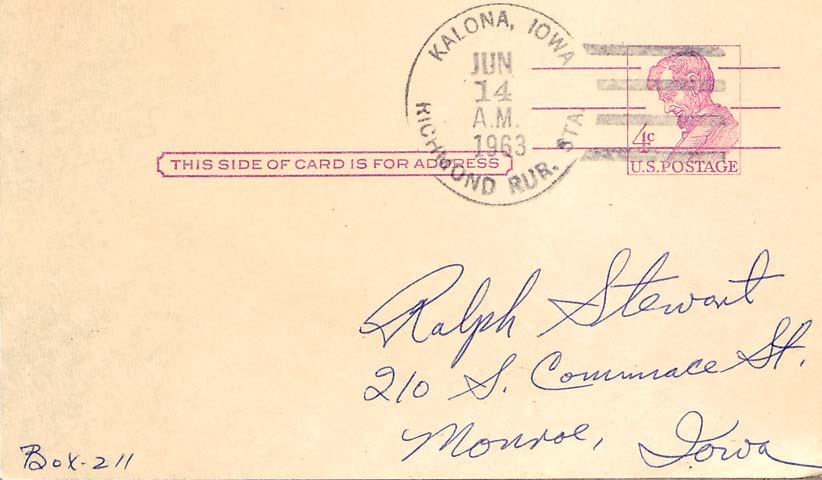 KALONA, IOWA
JUN
14
A.M.
1963
RICHMOND RUR. STA.
4c
U.S. POSTAGE
THIS SIDE OF CARD IS FOR ADDRESS
Ralph Stewart
210 S. Commace St.
Monroe, Iowa
Box-211